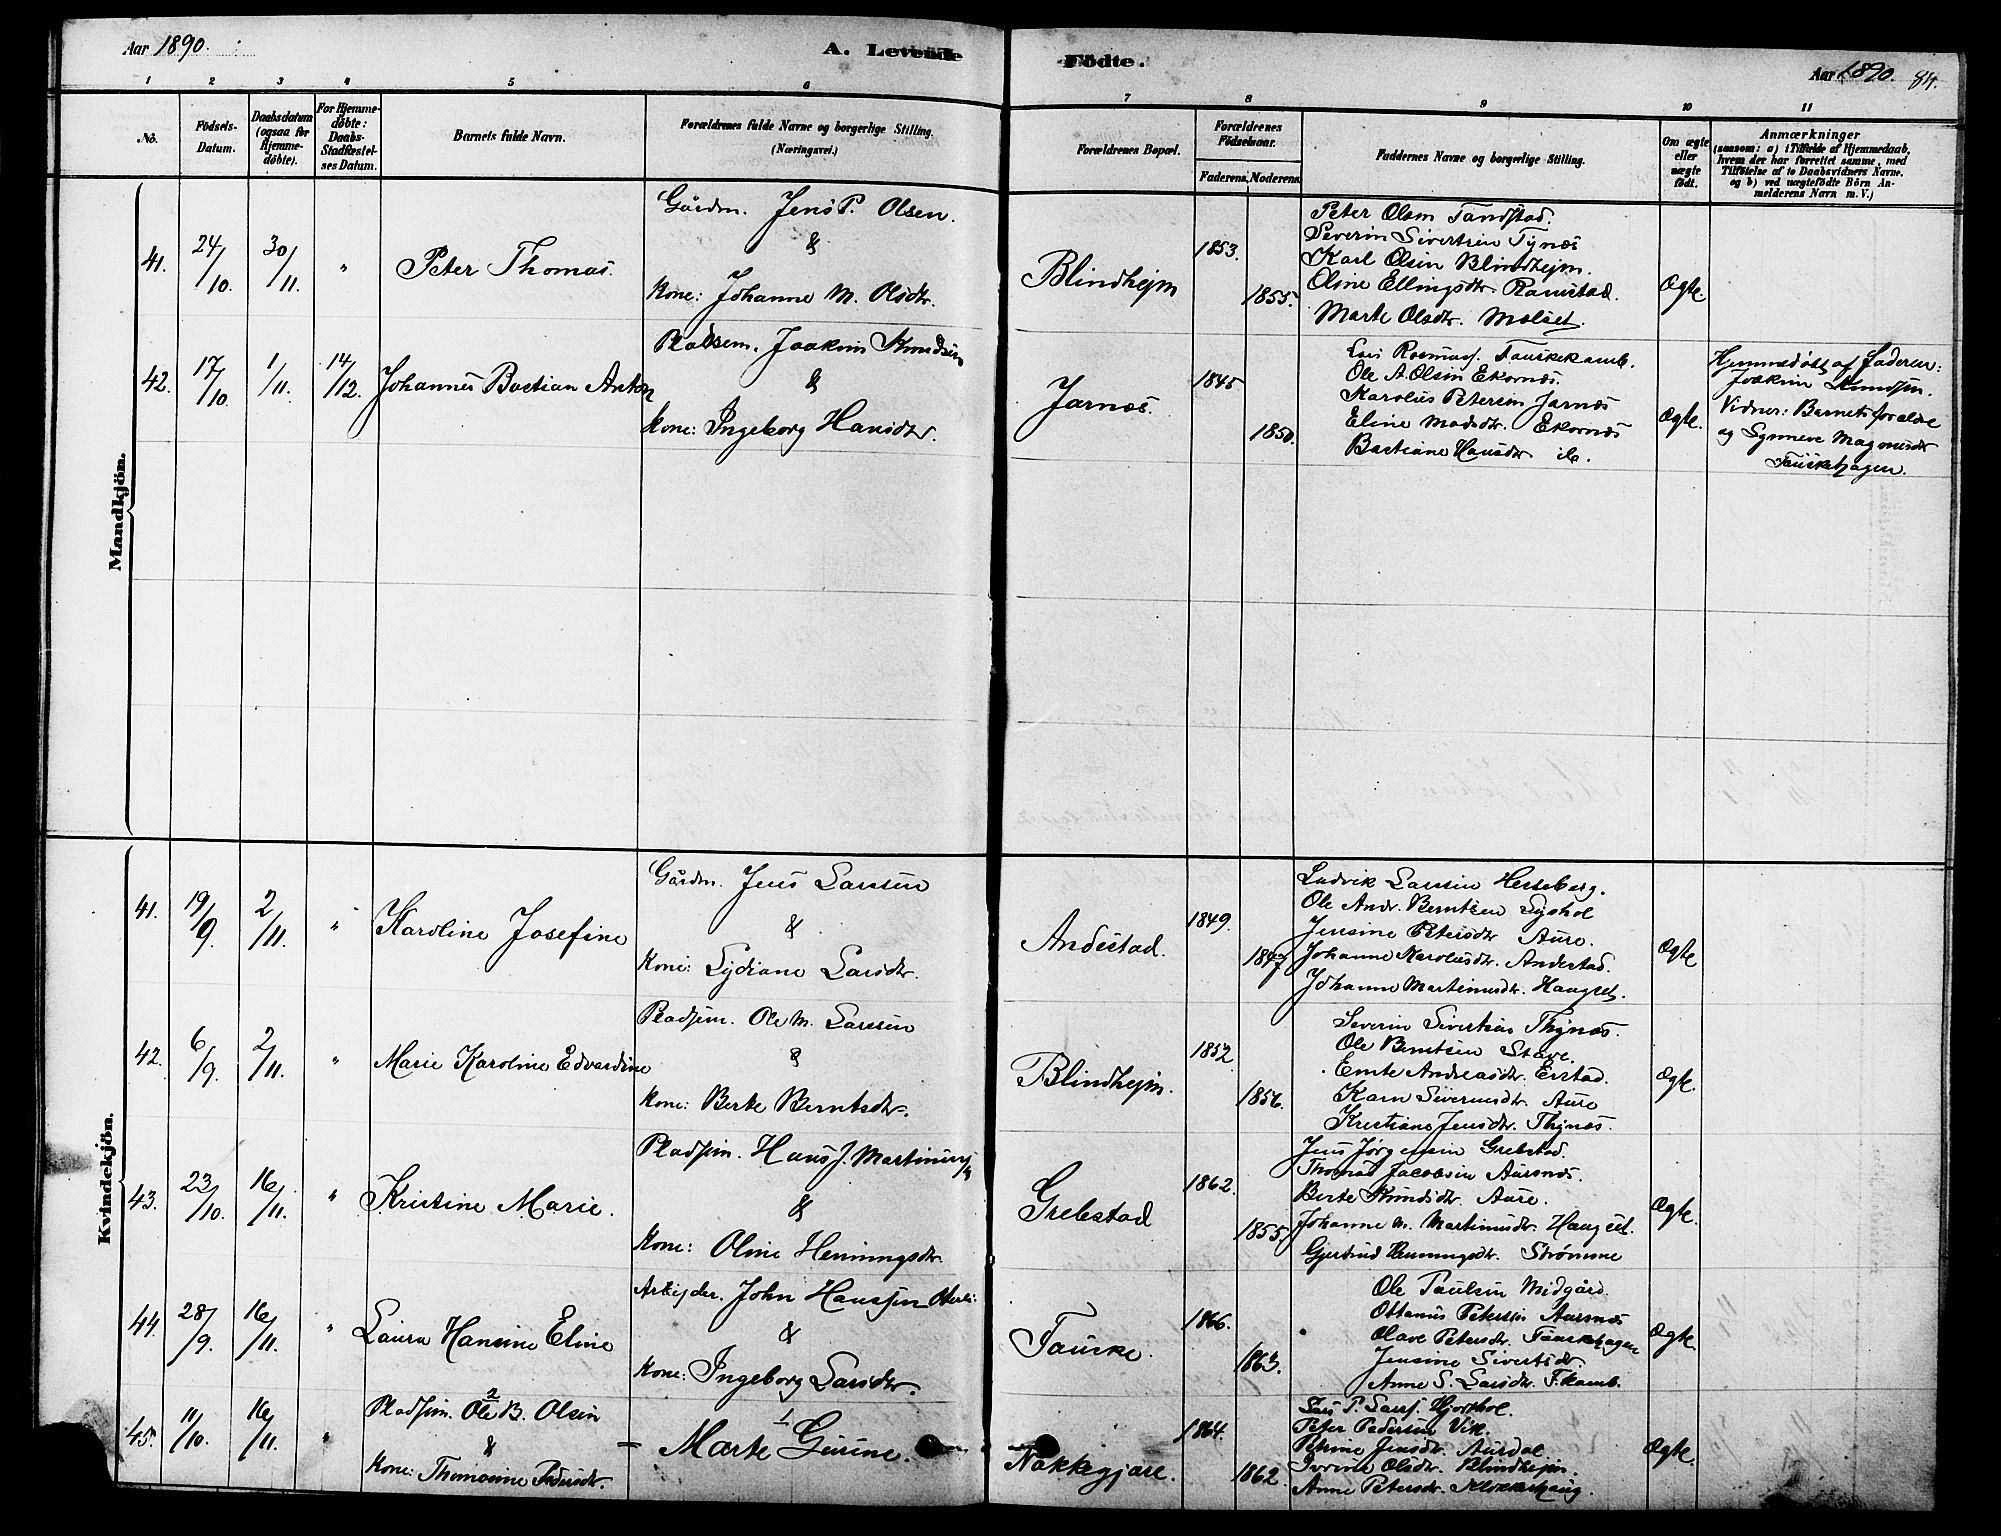 Aar 1890.
A. Levende
Födte.
Aar 1890. 84.
1 2 3 4 5 6 7 8 9 10 11
No.
Födsels-
Datum.
Daabsdatum
(ogsaa for
Hjemme-
döbte).
For Hjemme-
döbte:
Daabs-
Stadfæstel-
ses Datum.
Barnets fulde Navn.
Forældrenes fulde Navne og borgerlige Stilling.
(Næringsvei.)
Forældrenes Bopæl.
Forældrenes
Födselsaar.
Faderens. Moderens.
Faddernes Navne og borgerlige Stilling.
Om ægte
eller
uægte
født.
Anmærkninger
(saasom: a) i Tilfælde af Hjemmedaab,
hvem der har forrettet samme, med
Tilföielse af to Daabsvidners Navne,
og b) ved uægtefödte Börn An-
melderens Navn m. V.)
Mandkjön.
41. 24/10. 30/11. "
Peter Thomas.
Gårdm. Jens P. Olsen.
&
Kone: Johanne M. Olsdtr.
Blindhejm
1853.
1855.
Peter Olsen Tandstad.
Severin Sivertsen Tynæs
Karl Olsen Blindhejm.
Oline Ellingsdtr. Ramstad.
Marte Olsdtr. Molset.
Ægte.
42. 17/10. 1/11. 14/12.
Johannes Bastian Anton
Pladsem. Joakim Knudsen
&
Kone: Ingeborg Hansdtr.
Jarnæs.
1845
1850.
Rasmuss. Tauskekamb.
Ole A. Olsen Ekornæs.
Karolus Petersen Jarnæs
Eline Madsdtr. Ekornæs
Bastiane Hansdtr. ib.
Ægte.
Hjemmedöbt af Faderen:
Joakim Knudsen.
Vidner: Barnets forældre
og Synneve Magnusdtr
Tauskehagen.
Kvindekjön.
41. 19/9. 2/11. "
Karoline Josefine
Gårdm. Jens Larssen
&
Kone: Lydiane Larsdtr.
Andestad.
1849.
1847
Ludvik Larssen Hesseberg.
Ole Andr. Berntsen Lyshol
Jensine Petersdtr Aure.
Johanne Karolusdtr. Andestad.
Johanne Martinusdtr. Haugset.
Ægte
42. 6/9. 2/11. "
Marie Karoline Edvardine
Pladsem. Ole M. Larssen
&
Kone: Berte Berntsdtr.
Blindhejm.
1852
1856.
Severin Sivertsen Thynæs.
Ole Berntsen Stave.
Emte Andreasdtr. Erstad.
Karn Sivernsdtr. Aure
Kristiane Jensdtr. Thynæs.
Ægte.
43. 23/10. 16/11. "
Kristine Marie.
Pladsem. Hans J. Martinuss/n
&
Kone: Oline Henningsdtr.
Grebstad
1862.
1855
Jens Jørgensen Grebstad.
Thomas Jacobsen Aursnæs.
Berte Knudsdtr. Aure.
Johanne M. Martinusdtr. Haugset.
Gjertrud Henningsdtr. Strømme
Ægte.
44. 28/9. 16/11. "
Laura Hansine Eline
Arbejder. John Hanssen
&
Kone: Ingeborg Larsdtr.
Tauske.
1866.
1863.
Ole Paulsen Midgård.
Ottanus Peterssen Aursnæs
Olave Petersdtr. Tauskehagen
Jensine Sivertsdtr.
Anne S. Larsdtr. T.kamb.
Ægte
45. 11/10. 16/11. "
2
Pladsem. Ole B. Olsen
&
Kone: Thomasine Pedersdtr.
1
Marte Gurine.
Nakkegjære.
1864.
1862.
Lars P. Larss. Hjorthol.
Peter Pedersen Vik.
Petrine Jensdtr. Aurdal
Ivrine Olsdtr. Blindhejm.
Anne Petersdtr. Klokkerhaug.
Ægte.